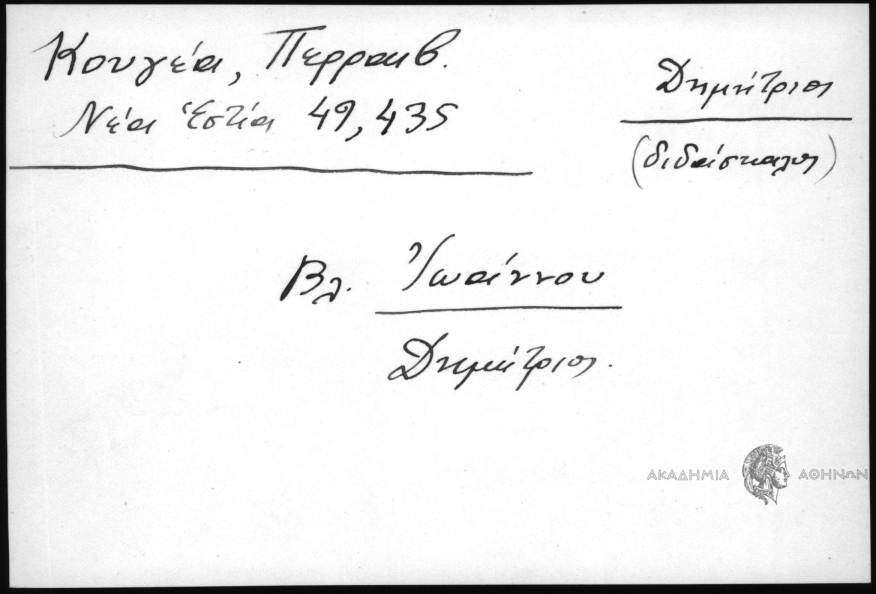 Κουγέα, Περραιβ.
Νέα Ἑστία 49, 435
Δημήτριος
(διδάσκαλος)
Βλ. Ἰωάννου
Δημήτριος.
ΑΚΑΔΗΜΙΑ ΑΘΗΝΩΝ